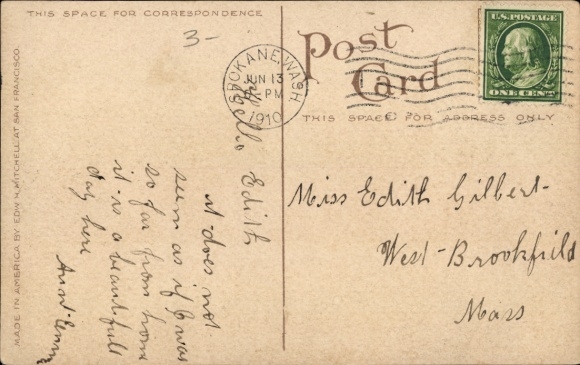 THIS SPACE FOR CORRESPONDENCE
3-
Post
Card
U.S. POSTAGE
ONE CENT
SPOKANE, WASH.
JUN 13
PM
1910
THIS SPACE FOR ADDRESS ONLY
MADE IN AMERICA BY EDW. H. MITCHELL AT SAN FRANCISCO.
Hello Edith
it does not
seem as if I was
so far from home
it is a beautifull
day here
Aunt
Miss Edith Gilbert-
West-Brookfield
Mass